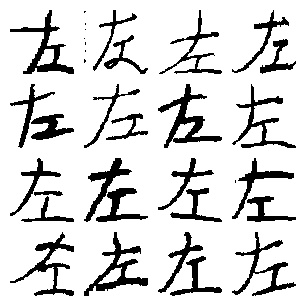 左左左左
左左左左
左左左左
左左左左